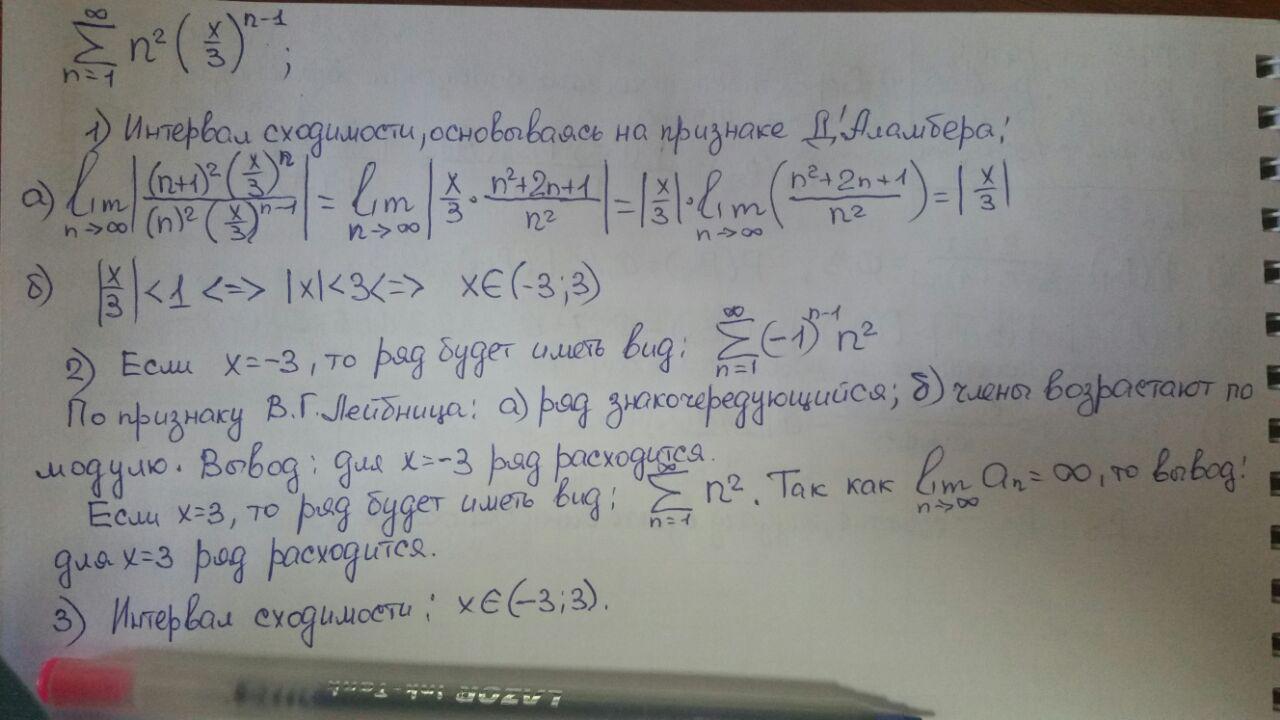 ∑_{n=1}^{∞} n² (x/3)^{n-1};
1) Интервал сходимости, основываясь на признаке Д'Аламбера:
а) lim_{n→∞} |(n+1)² (x/3)^n / (n)² (x/3)^{n-1}| = lim_{n→∞} |x/3 · (n²+2n+1)/n²| = |x/3| · lim_{n→∞} ((n²+2n+1)/n²) = |x/3|
б) |x/3| < 1 <=> |x| < 3 <=> x∈(-3;3)
2) Если x=-3, то ряд будет иметь вид: ∑_{n=1}^{∞} (-1)^{n-1} n²
По признаку В.Г.Лейбница: а) ряд знакочередующийся; б) члены возрастают по
модулю. Вывод: для x=-3 ряд расходится.
Если x=3, то ряд будет иметь вид: ∑_{n=1}^{∞} n². Так как lim_{n→∞} a_n = ∞, то вывод:
для x=3 ряд расходится.
3) Интервал сходимости: x∈(-3;3).
LAZOR Ink-Tank